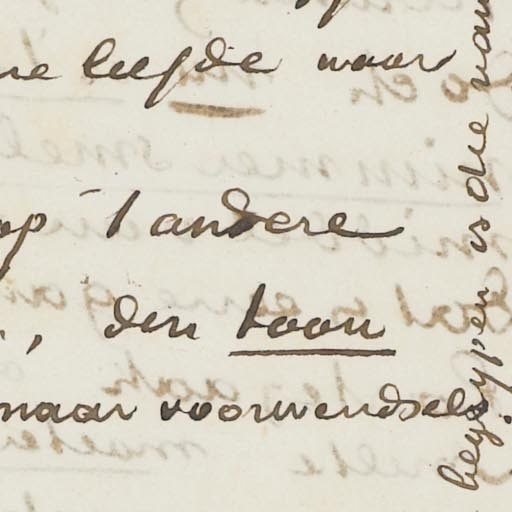 liefde waar
op 't andere
, den toon
naar voorwendsels
begrypen is die van